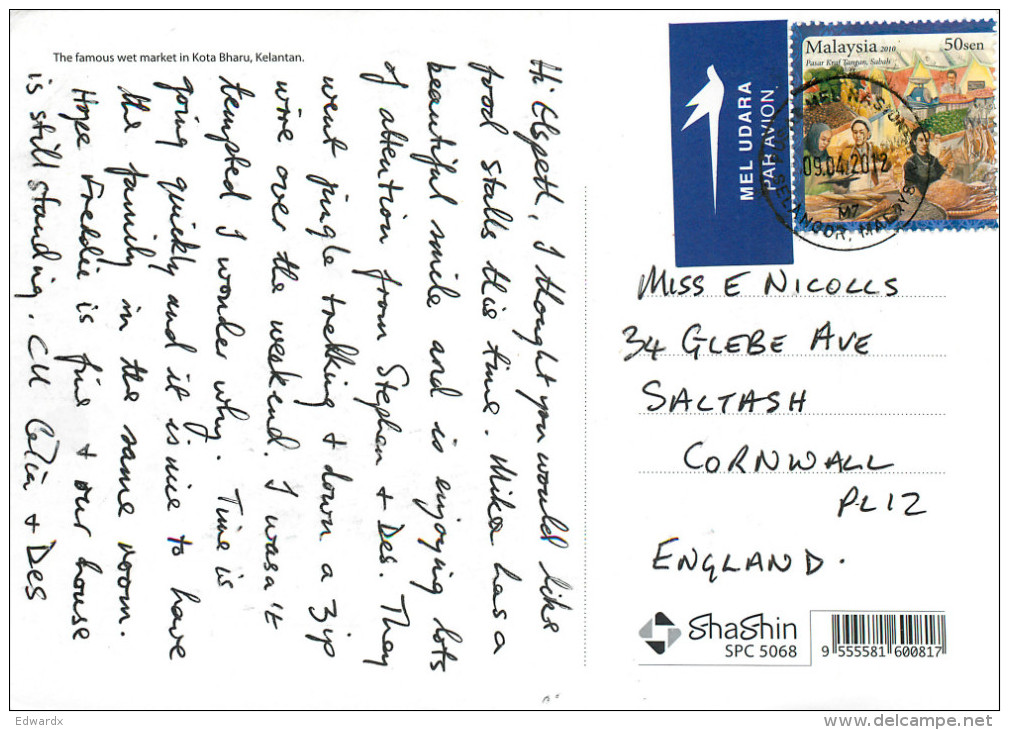 The famous wet market in Kota Bharu, Kelantan.
Hi Elspeth, I thought you would like
food stalls this time. Mika has a
beautiful smile and is enjoying lots
of attention from Stephen + Des. They
went jungle trekking + down a zip
wire over the weekend. I wasn't
tempted I wonder why. Time is
going quickly and it is nice to have
the family in the same room.
Hope Freddie is fine + our house
is still standing. CU Celia + Des
MEL UDARA
PAR AVION
Malaysia 2010 50sen
Pasar Kraf Tangan, Sabah
09.04.2012
M7
SELANGOR, MALAYS
MISS E NICOLLS
34 GLEBE AVE
SALTASH
CORNWALL
PL12
ENGLAND.
ShaShin
SPC 5068
9 555581 600817
Edwardx
delcampe.net